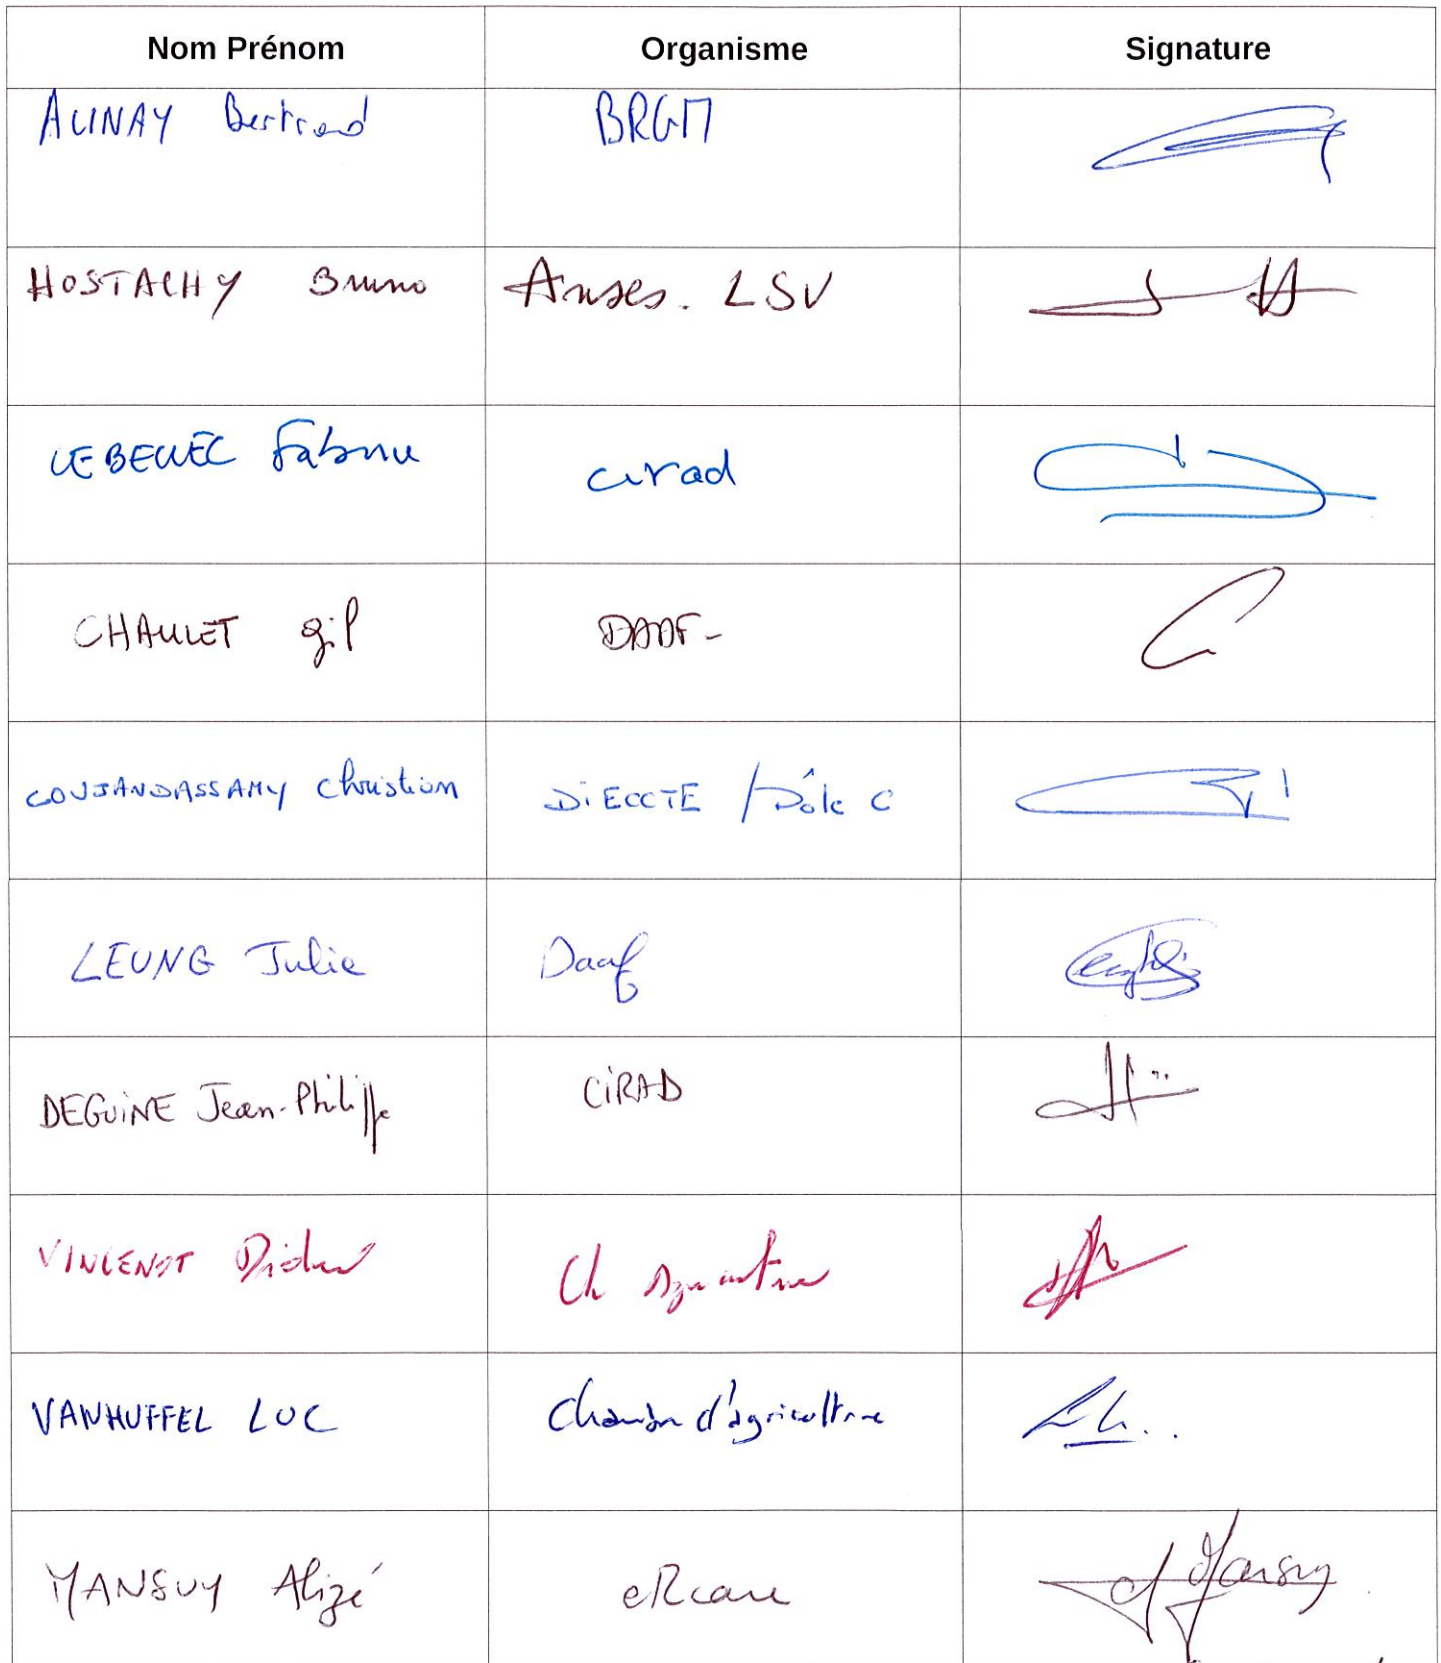 Nom Prénom Organisme Signature
AUNAY Bertrand BRGM
HOSTACHY Bruno Anses. LSV
LE BELLEC Fabrice cirad
CHAULET gil DAAF-
COUJANDASSAMY Christian DiECCTE / Pôle C
LEUNG Julie Daaf
DEGUiNE Jean-Philippe CiRAD
VINCENOT Didier Ch Agriculture
VANHUFFEL LUC Chambre d'agriculture
MANSUY Alizé eRcane
Mansuy